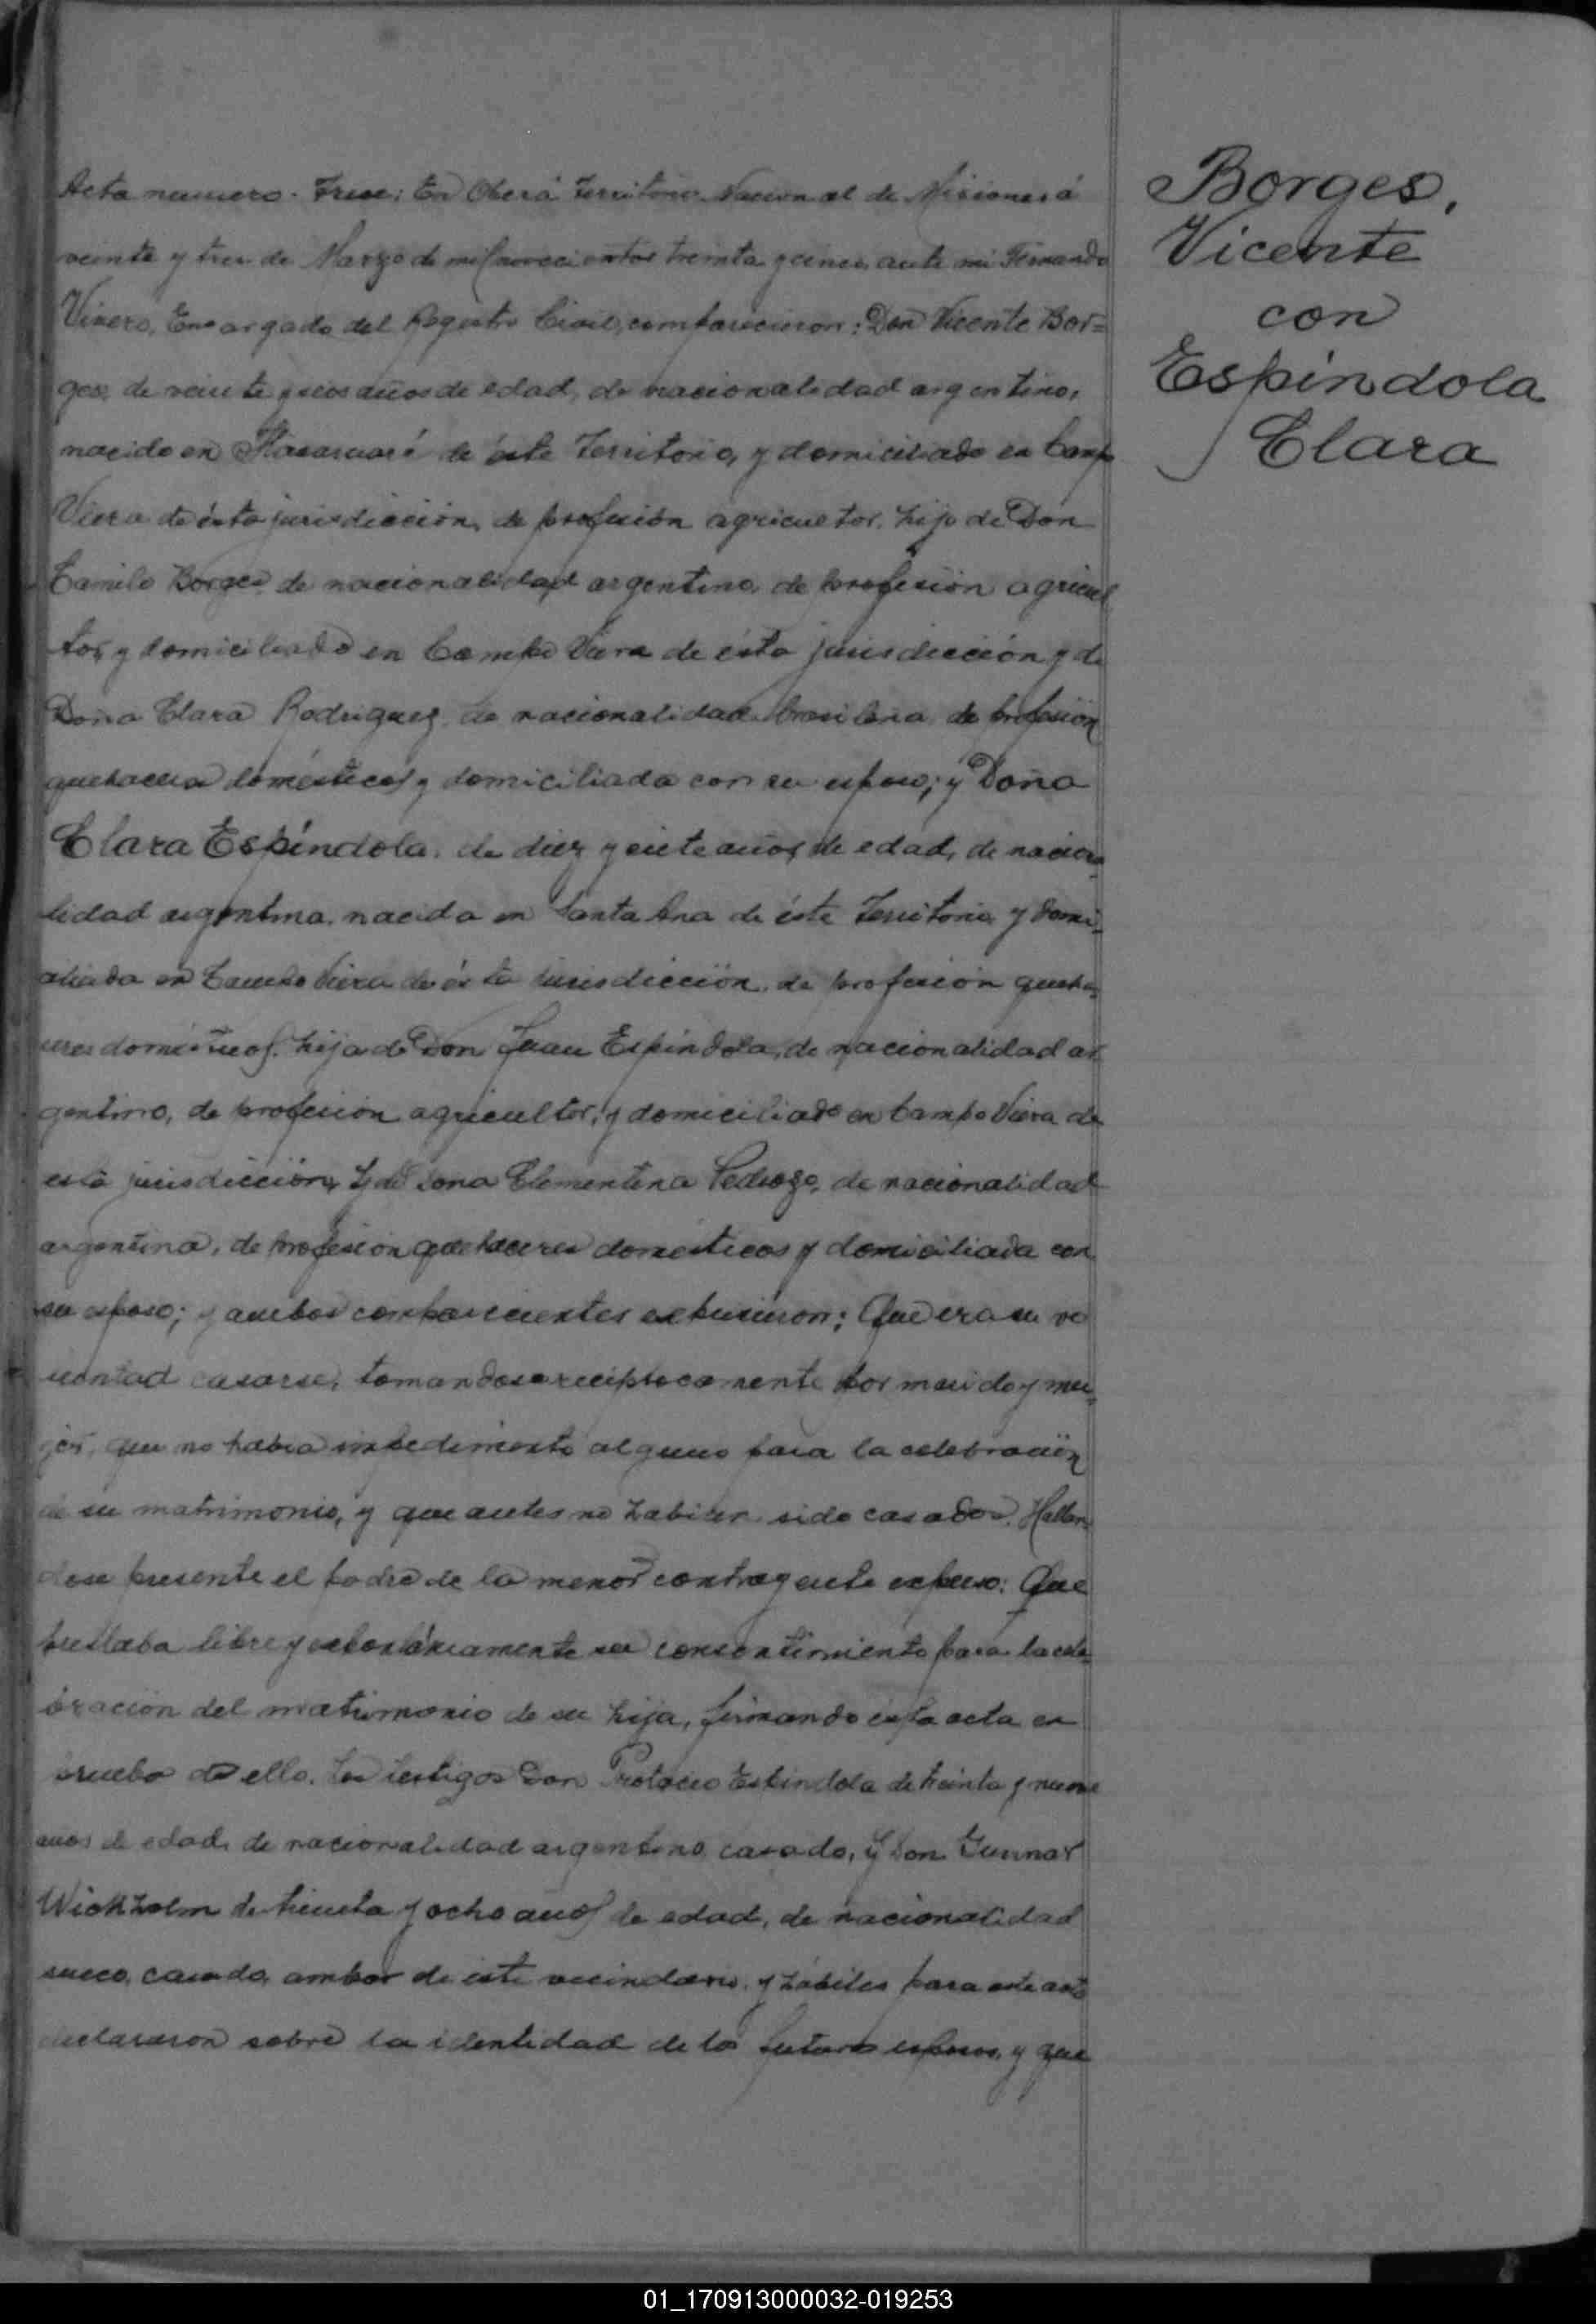 Acta numero. Trece: En Oberá Territorio Nacional de Misiones á
veinte y tres de Marzo de mil novecientos treinta y cinco, ante mi Fernando
Encargado del Registro Civil, comparecieron: Don Vicente Bor=
ges, de veinte y dos años de edad, de nacionalidad argentino,
nacido en Itacaruaré de éste Territorio, y domiciliado en Campo
Viera de ésta jurisdicción, de profesión agricultor, hijo de Don
Camilo Borges, de nacionalidad argentino, de profesión agricul
tor, y domiciliado en Campo Viera de ésta jurisdicción y de
Doña Clara Rodriguez, de nacionalidad brasileña, de profesión
quehaceres domésticos y domiciliada con su esposo; y Doña
Clara Espíndola, de diez y siete años de edad, de naciona
lidad argentina, nacida en Santa Ana de éste Territorio y domi
ciliada en Campo Viera de ésta jurisdicción, de profesión queha
ceres domésticos, hija de Don Juan Espíndola, de nacionalidad ar
gentino, de profesión agricultor, y domiciliado en Campo Viera de
esta jurisdicción, y de Doña Clementina Pedrozo, de nacionalidad
argentina, de profesión quehaceres domésticos y domiciliada con
su esposo; y ambos comparecientes expusieron: Que era su vo
luntad casarse, tomandose reciprocamente por marido y mu
jer, que no habia impedimento alguno para la celebración
de su matrimonio, y que antes no habian sido casados. Hallan
dose presente el padre de la menor contrayente expuso: Que
prestaba libre y espontáneamente su consentimiento para la cele
bración del matrimonio de su hija, firmando esta acta en
prueba de ello. Los testigos Don Protacio Espíndola de treinta y nueve
años de edad, de nacionalidad argentino, casado, y Don Gunnar
Wickholm de treinta y ocho años de edad, de nacionalidad
sueco, casado, ambos de éste vecindario, y hábiles para este acto
declararon sobre la identidad de los futuros esposos, y que
Borges,
Vicente
con
Espíndola
Clara
01_170913000032-019253